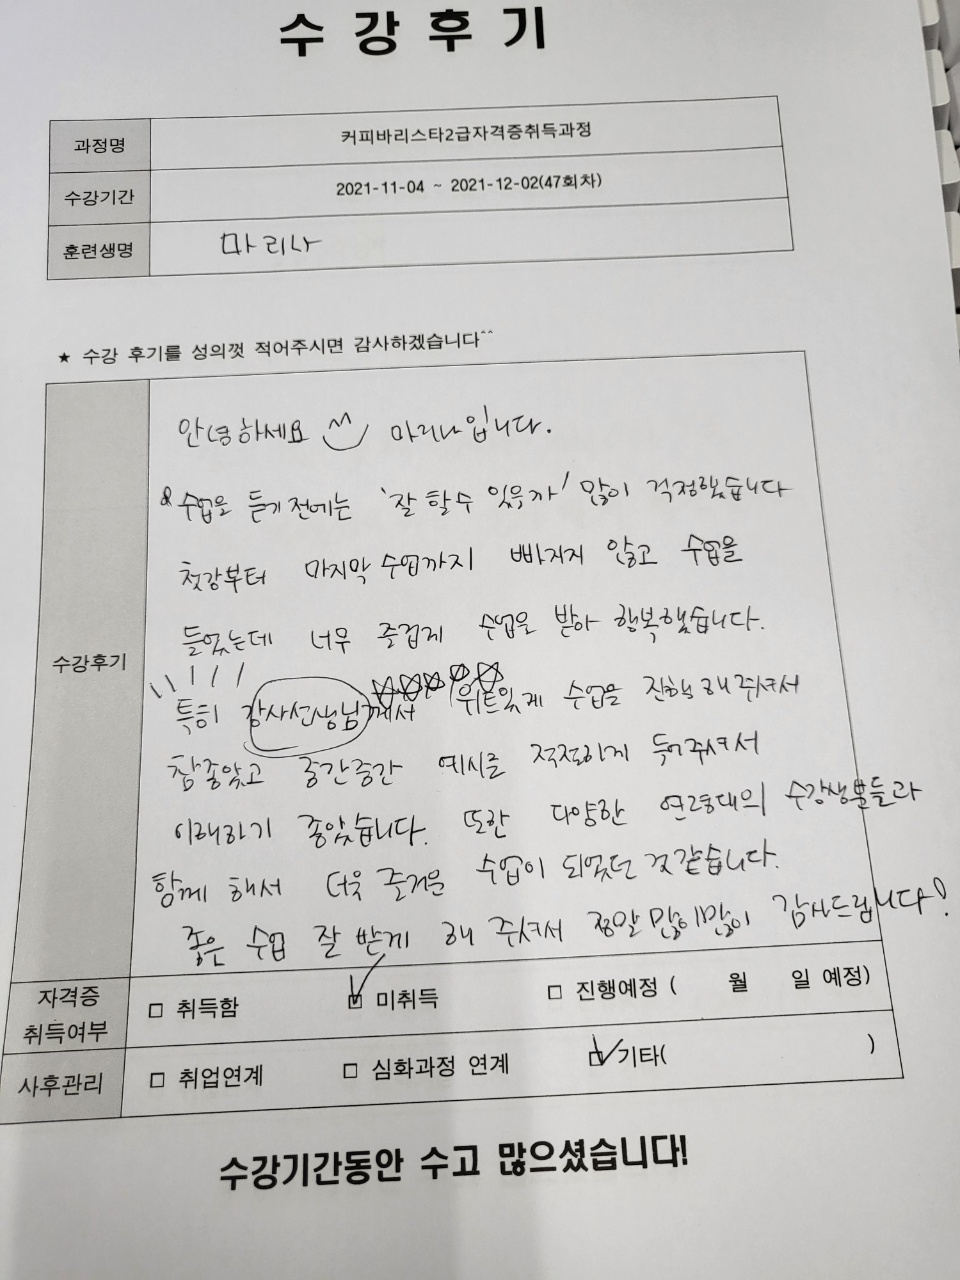 수 강 후 기
과정명 커피바리스타2급자격증취득과정
수강기간 2021-11-04 ~ 2021-12-02(47회차)
훈련생명 마리나
★ 수강 후기를 성의껏 적어주시면 감사하겠습니다^^
수강후기
안녕하세요 마리나입니다.
수업을 듣기 전에는 '잘 할수 있을까' 많이 걱정했습니다
첫강부터 마지막 수업까지 빠지지 않고 수업을
들었는데 너무 즐겁게 수업을 받아 행복했습니다.
특히 강사선생님께서 위트있게 수업을 진행해주셔서
참좋았고 중간중간 예시를 적절하게 들어주셔서
이해하기 좋았습니다. 또한 다양한 연령대의 수강생분들과
함께 해서 더욱 즐거운 수업이 되었던 것 같습니다.
좋은 수업 잘 받게 해 주셔서 정말 많이많이 감사드립니다!
자격증 취득여부 □ 취득함 □ 미취득 □ 진행예정 ( 월 일 예정)
사후관리 □ 취업연계 □ 심화과정 연계 □ 기타( )
수강기간동안 수고 많으셨습니다!